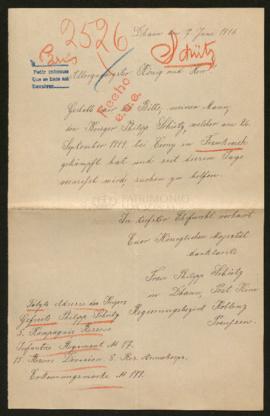 2526
Paris
Schütz
Dhaun am 7 Juni 1916
Pedir informes
Que se hace así
Allergnädigster König und Herr
Hecho
Gestatte mir die Bitte, meinen Mann,
den Krieger Philipp Schütz, welcher am 26
September 1914 bei Cerny in Frankreich
gekämpft hat und seit diesem Tage
vermißt wird, suchen zu helfen.
PATRIMONIO
In tiefster Ehrfurcht verharrt
Euer Königlichen Majestät
Frau Philipp Schütz
in Dhaun, Post Kirn
Regierungsbezirk Koblenz
Preussen.
Letzte Adresse des Kriegers
Gefreite Philipp Schütz
5. Kompagnie Reserve
Infanterie Regiment № 17.
15. Reserve Division 8. Res. Armeekorps.
Erkennungsmarke № 177.